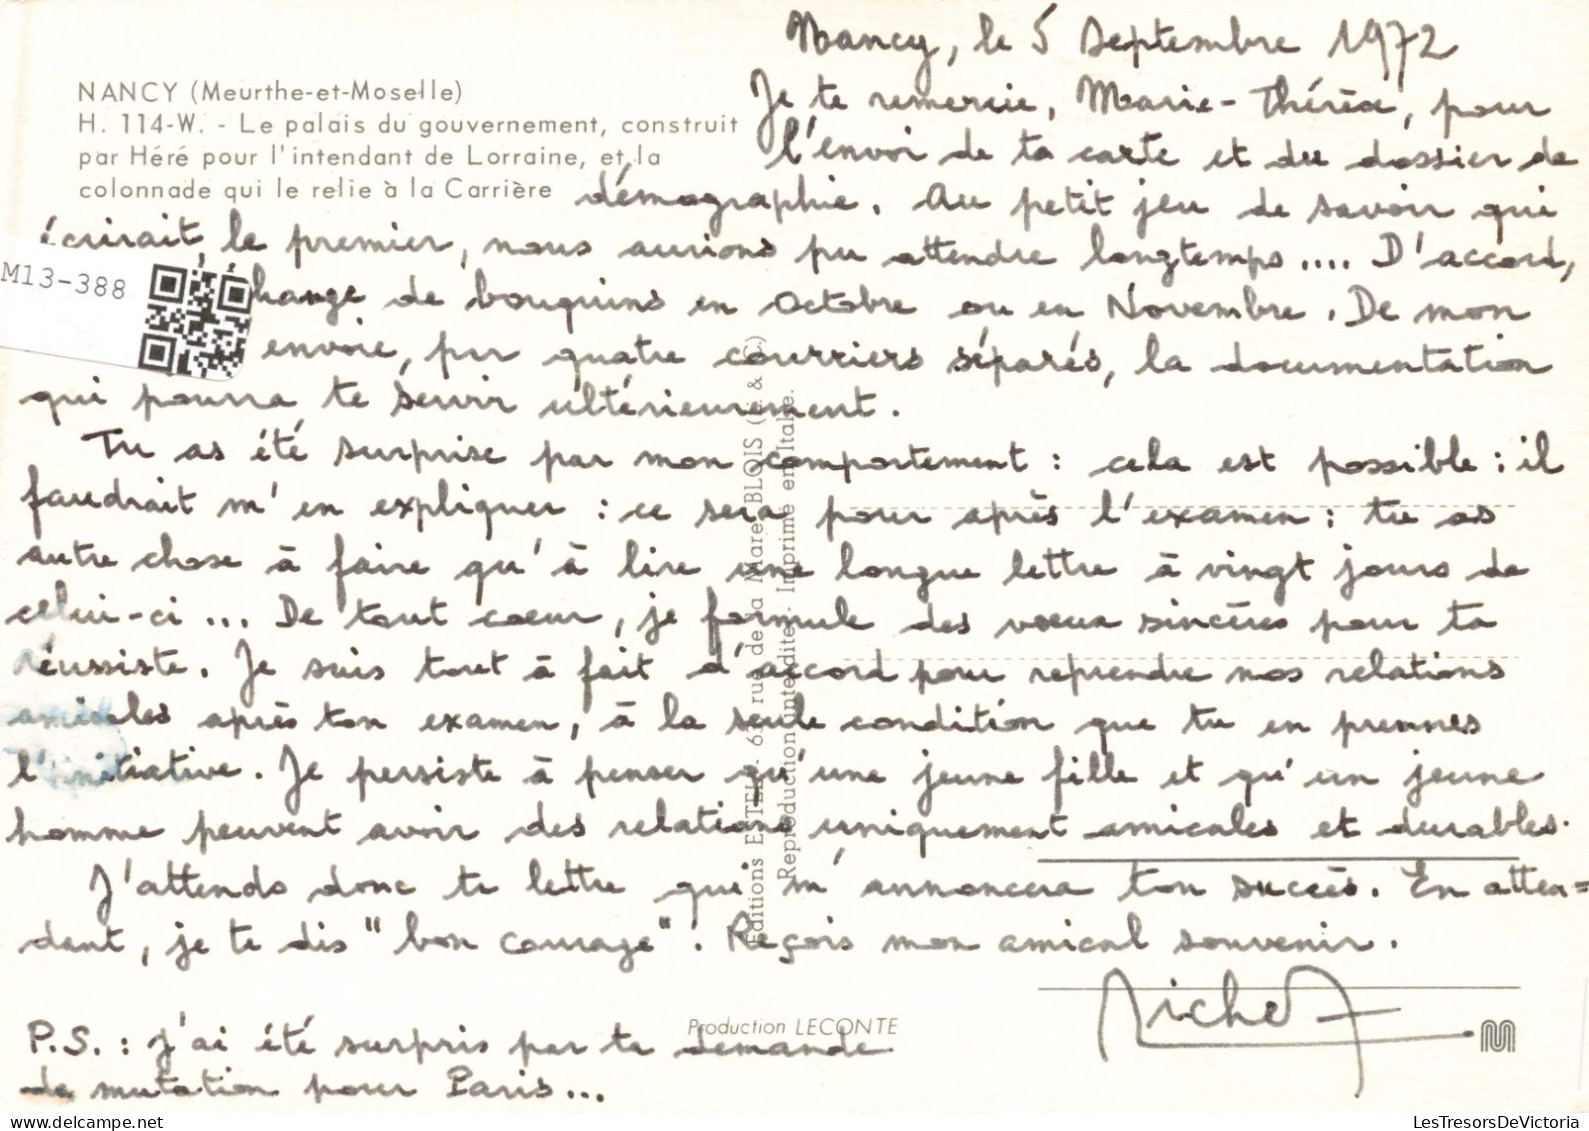 Nancy, le 5 Septembre 1972
NANCY (Meurthe-et-Moselle)
H. 114-W. - Le palais du gouvernement, construit
par Héré pour l'intendant de Lorraine, et la
colonnade qui le relie à la Carrière
Je te remercie, Marie-Thérèse, pour
l'envoi de ta carte et du dossier de
démographie. Au petit jeu de savoir qui
écrirait le premier, nous aurions pu attendre longtemps .... D'accord,
M13-388
change de bouquins en Octobre ou en Novembre. De mon
envoie, par quatre courriers séparés, la documentation
qui pourra te servir ultérieurement.
Tu as été surprise par mon comportement : cela est possible : il
faudrait m'en expliquer : ce sera pour après l'examen : tu as
autre chose à faire qu'à lire une longue lettre à vingt jours de
celui-ci ... De tout coeur, je formule des voeux sincères pour ta
réussiste. Je suis tout à fait d'accord pour reprendre nos relations
amicales après ton examen, à la seule condition que tu en prennes
l'initiative. Je persiste à penser qu'une jeune fille et qu'un jeune
homme peuvent avoir des relations uniquement amicales et durables.
J'attends donc ta lettre qui m'annoncera ton succès. En atten=
dant, je te dis "bon courage". Reçois mon amical souvenir.
Michel
P.S. : J'ai été surpris par ta demande
de mutation pour Paris...
Production LECONTE
Editions ESTEL - 63, rue de la Mare BLOIS (L. & C.)
Reproduction interdite - Imprimé en Italie.
M
LesTresorsDeVictoria.com